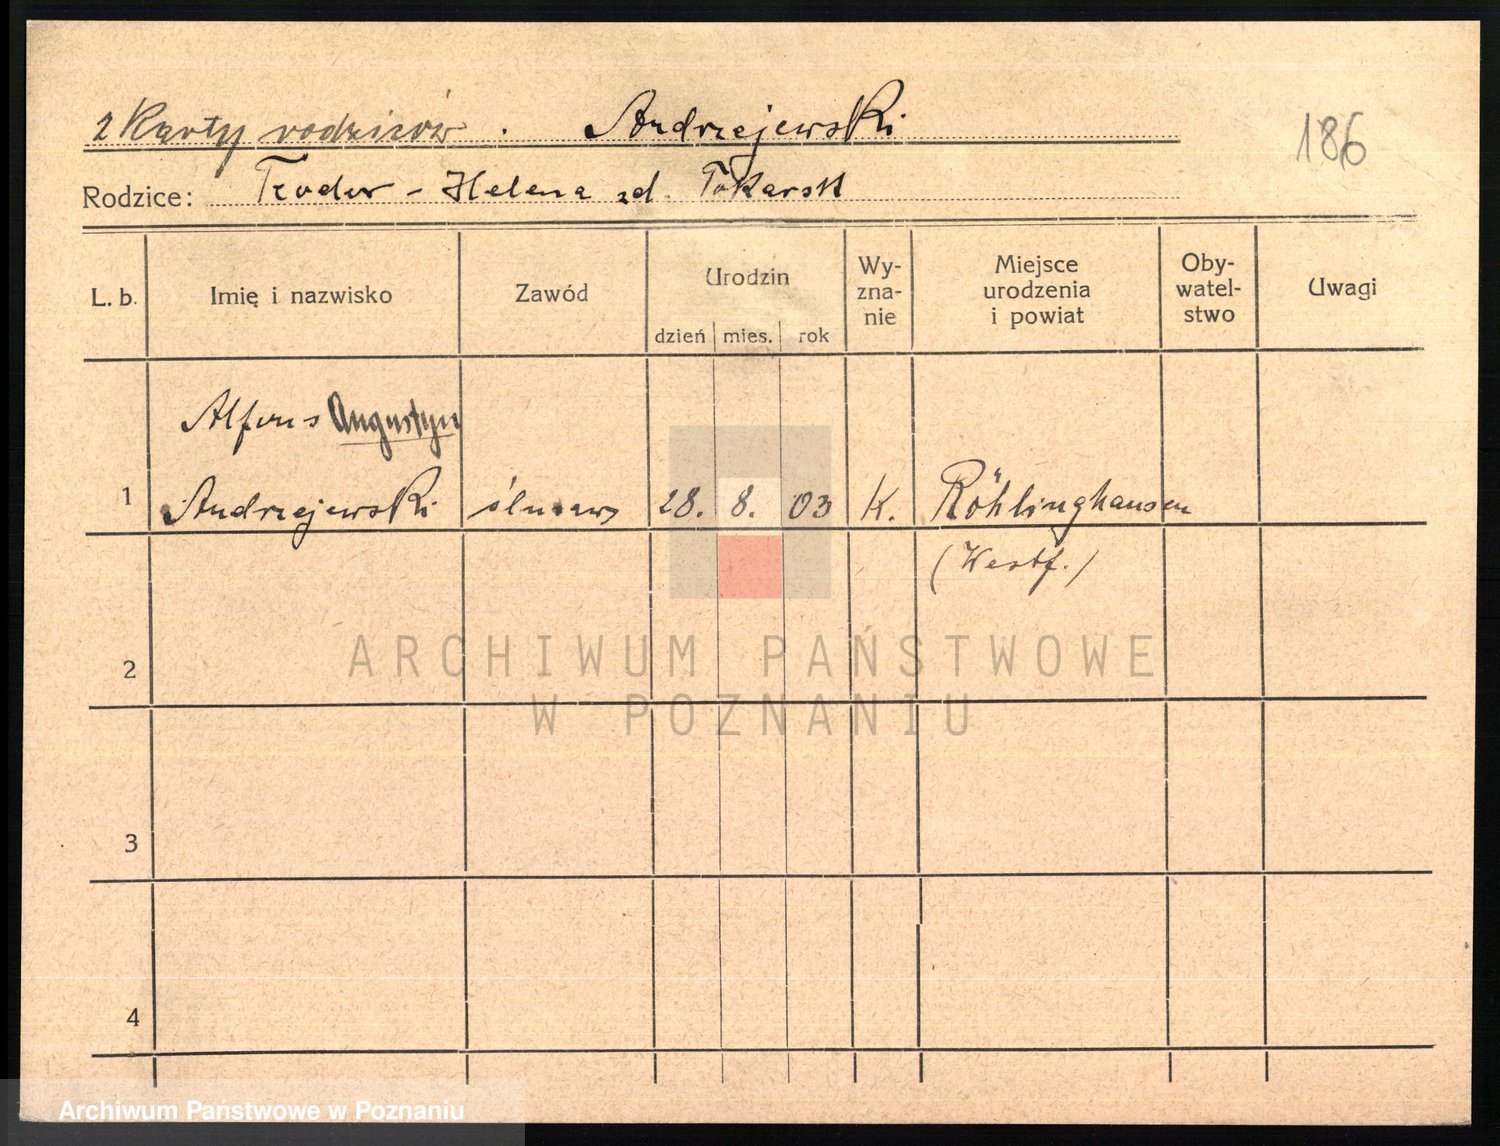 z Karty rodziców . Andrzejewski
186
Rodzice: Teodor - Helena zd. Tokarsk
L. b. Imię i nazwisko Zawód Urodzin dzień mies. rok Wy-zna-nie Miejsce urodzenia i powiat Oby-watel-stwo Uwagi
Alfons Augustyn
1 Andrzejewski 28. 8. 03 K. Röhlinghausen
(Westf.)
2
ARCHIWUM PAŃSTWOWE
W POZNANIU
3
4
Archiwum Państwowe w Poznaniu